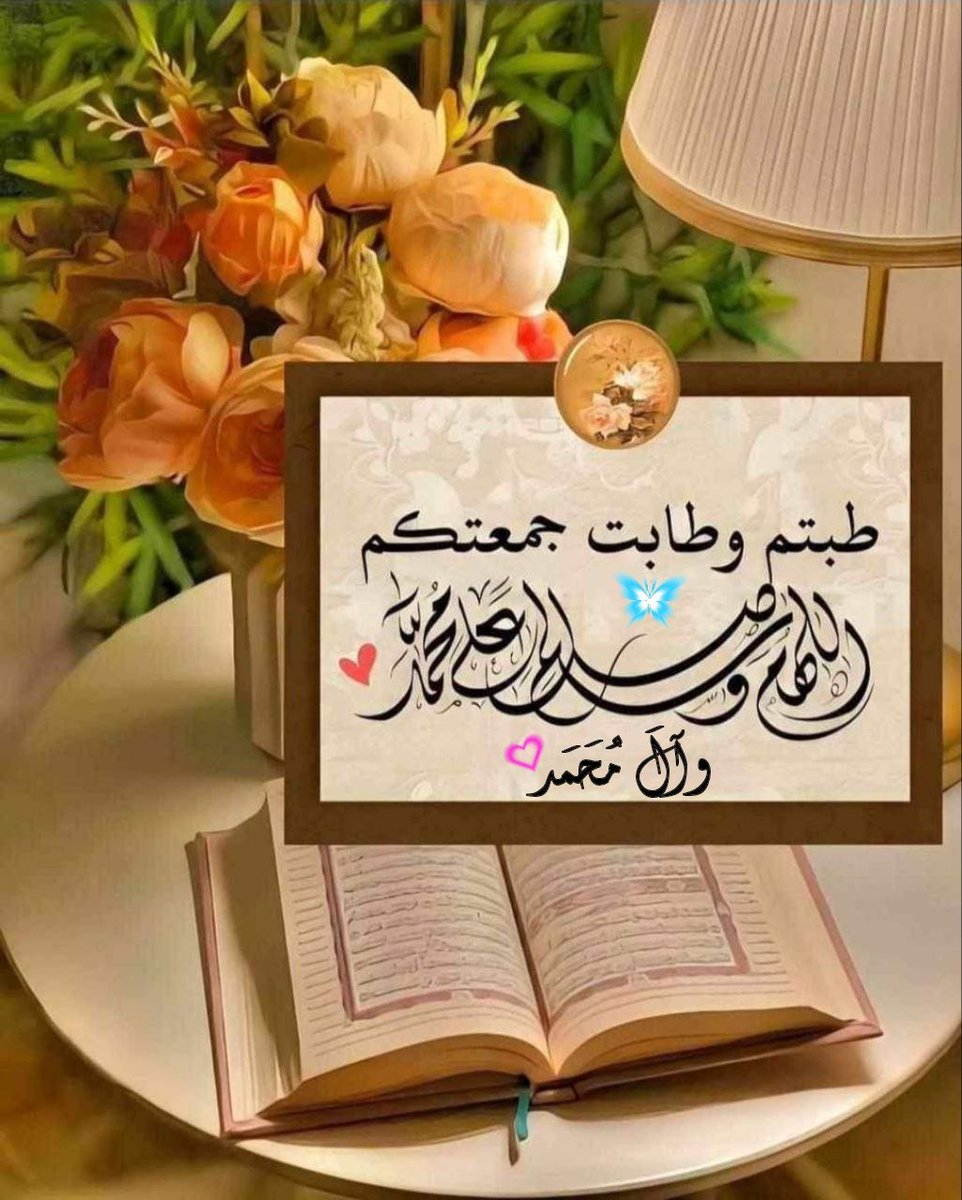 طبتم وطابت جمعتكم
اللهم صل وسلم على محمد
وآلَ مُحَمَد